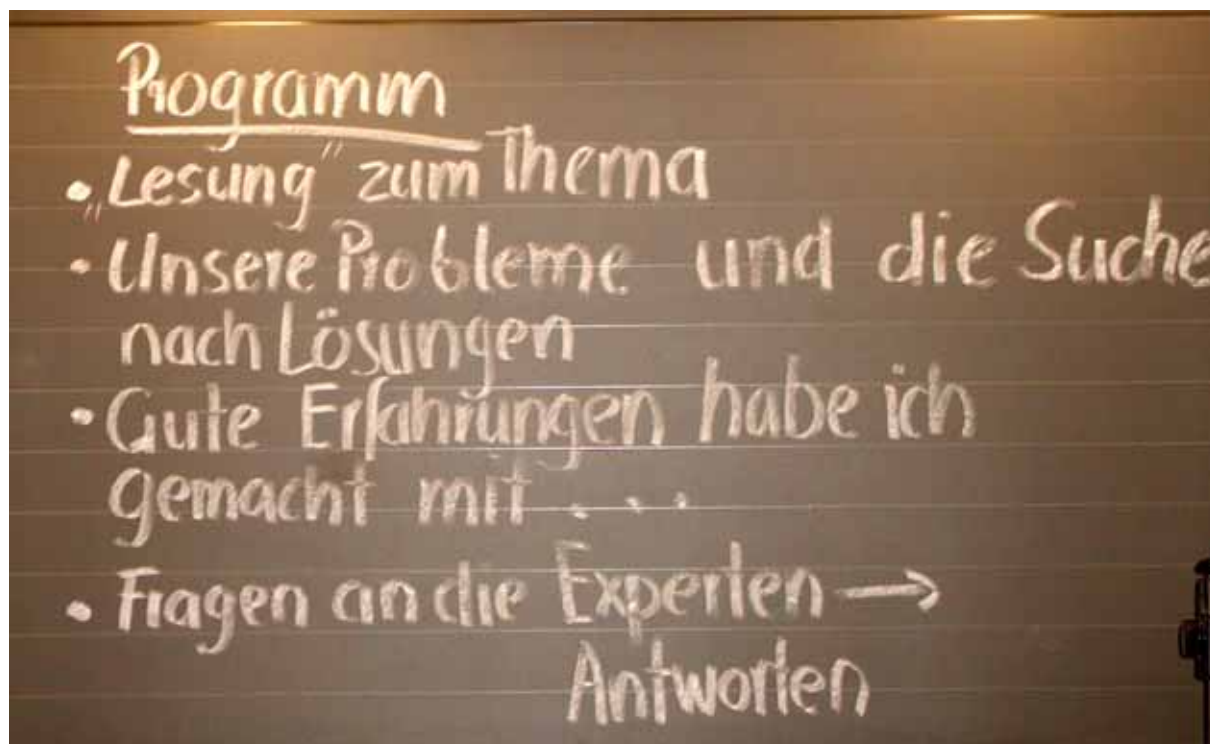 Programm
• „Lesung" zum Thema
• Unsere Probleme und die Suche
nach Lösungen
• Gute Erfahrungen habe ich
gemacht mit ...
• Fragen an die Experten →
Antworten